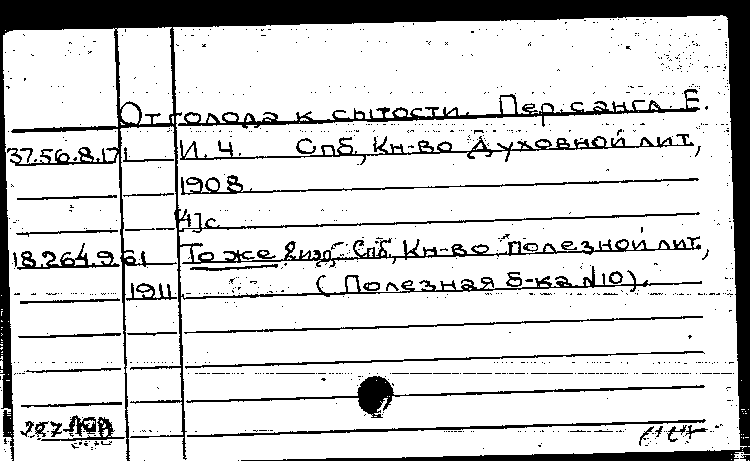 От голода к сытости. Пер. с англ. Е.
37.56.8.171 И. Ч. Спб, Кн-во Духовной лит.,
1908.
[4]с
18.264.9.61 То же 2 изд, Спб, Кн-во полезной лит.,
1911 (Полезная б-ка №10).